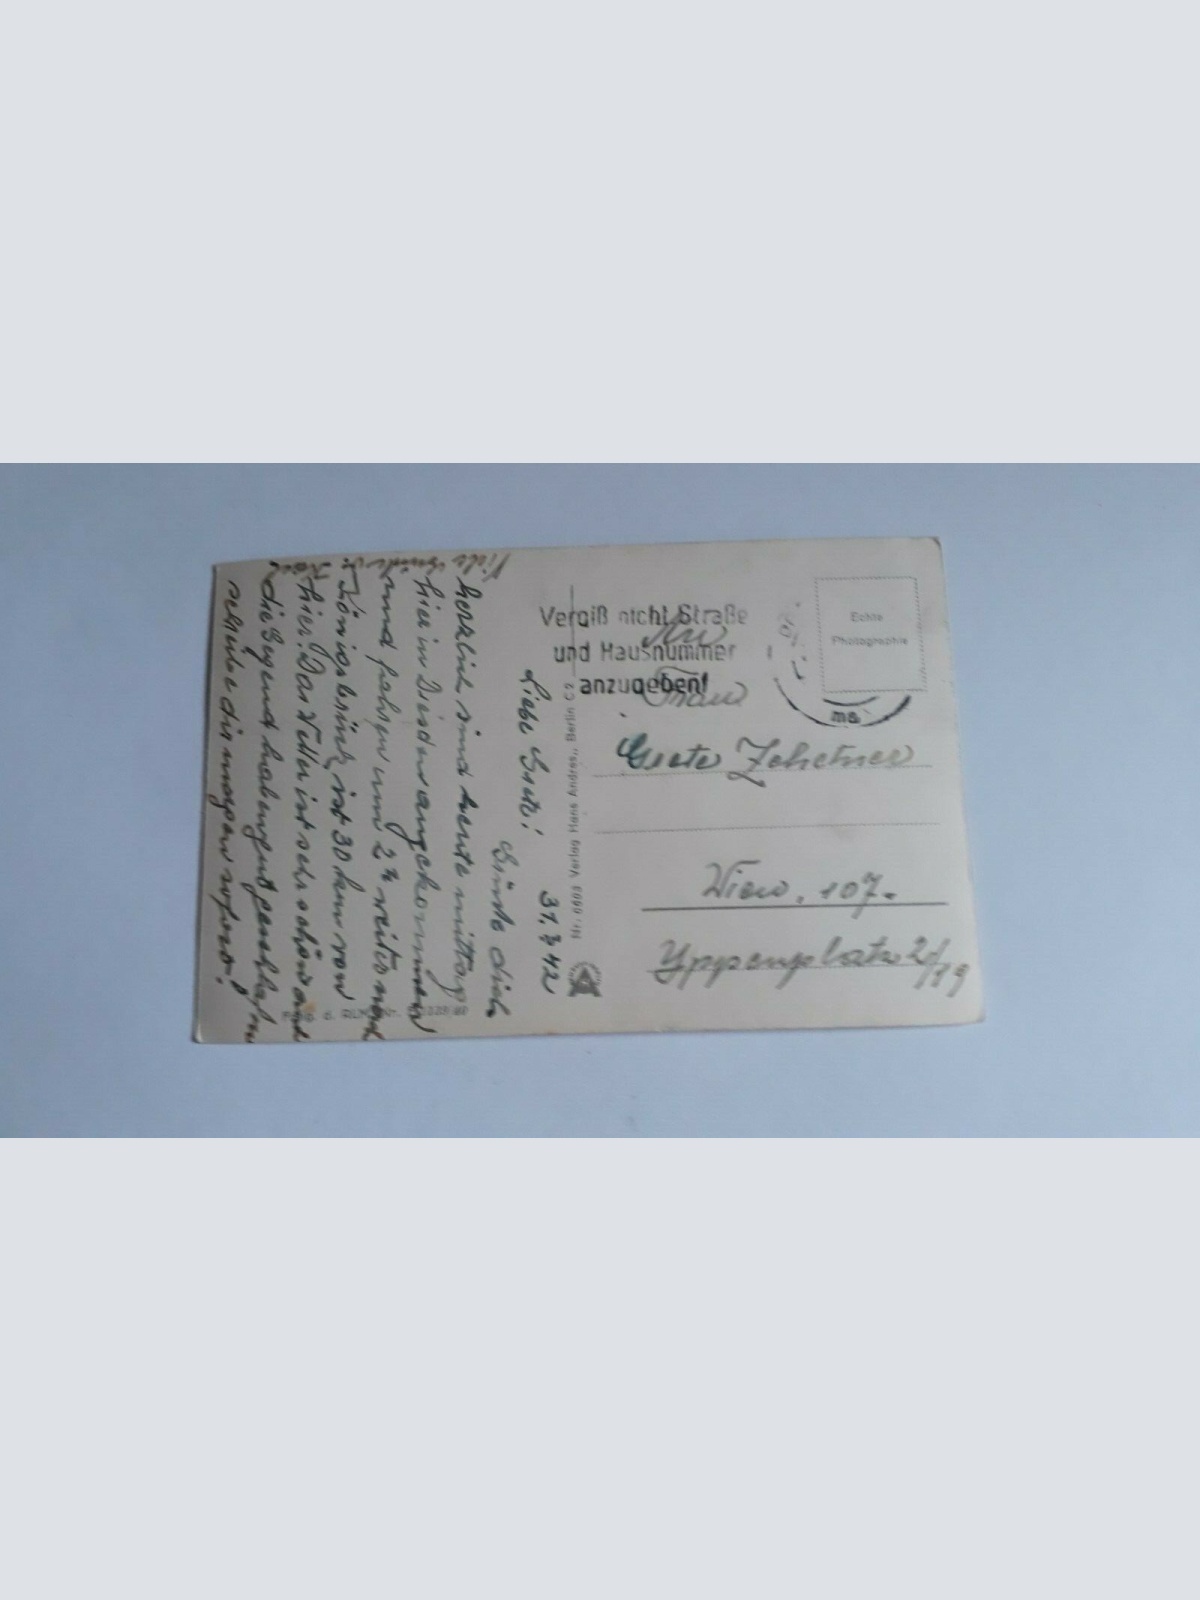 31.3.42
Liebe Gretl!
Grüße dich
herzlich sind heute mittag
hier in Dresden angekommen
und fahren um 2 weiter nach
Königsbrück, ist 30 km von
hier. Das Wetter ist sehr schön und
die Gegend haben gut geschlafen
schreibe dir morgen sofort.
Viele Grüße
Nr. 0603 Verlag Hans Andres, Berlin C 2
Vergiß nicht Straße
und Hausnummer
anzugeben!
Echte
Photographie
An
Frau
Grete Zehetner
Wien. 107.
Yppenplatz